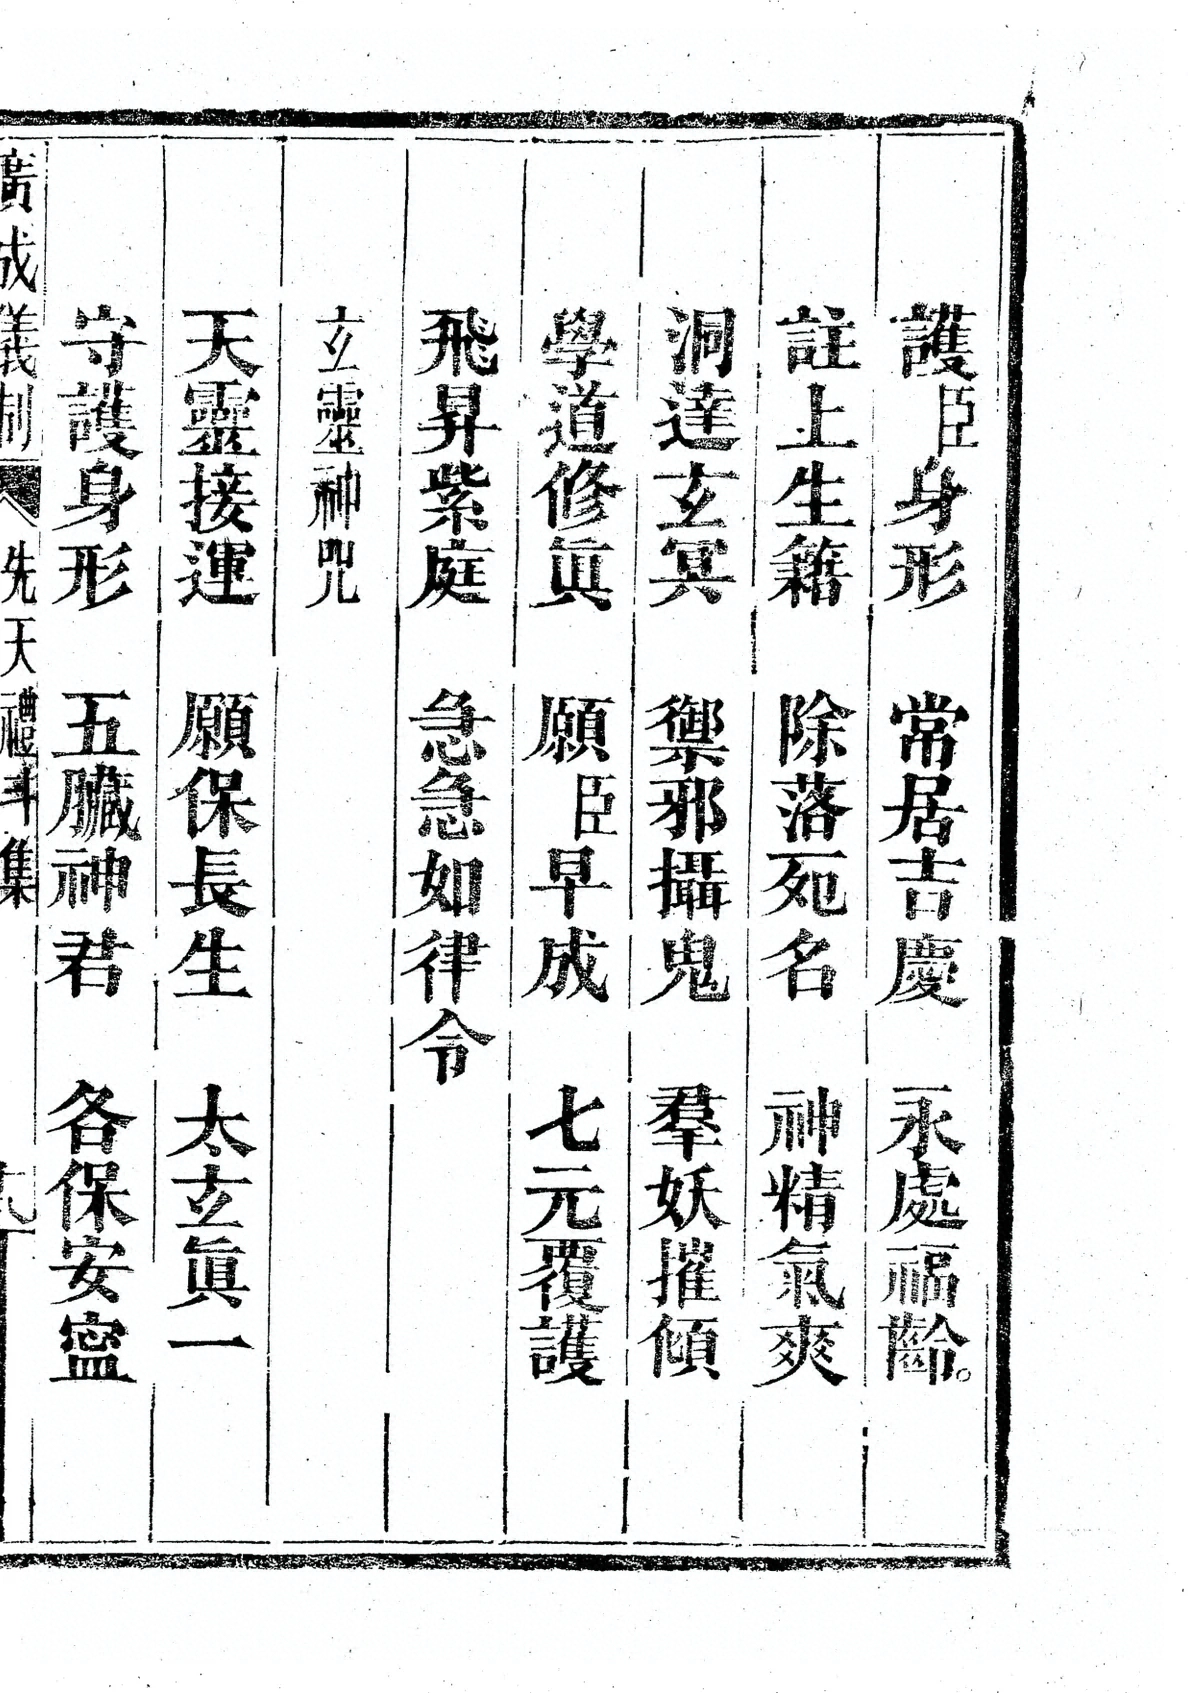 護臣身形　常居吉慶　永處福齡。
註上生籍　除落死名　神精氣爽
洞達玄冥　禦邪攝鬼　羣妖摧傾
學道修眞　願臣早成　七元覆護
飛昇紫庭　急急如律令
玄靈神咒
天靈接運　願保長生　太玄眞一
守護身形　五臟神君　各保安寍
廣成儀制　先天禮斗集